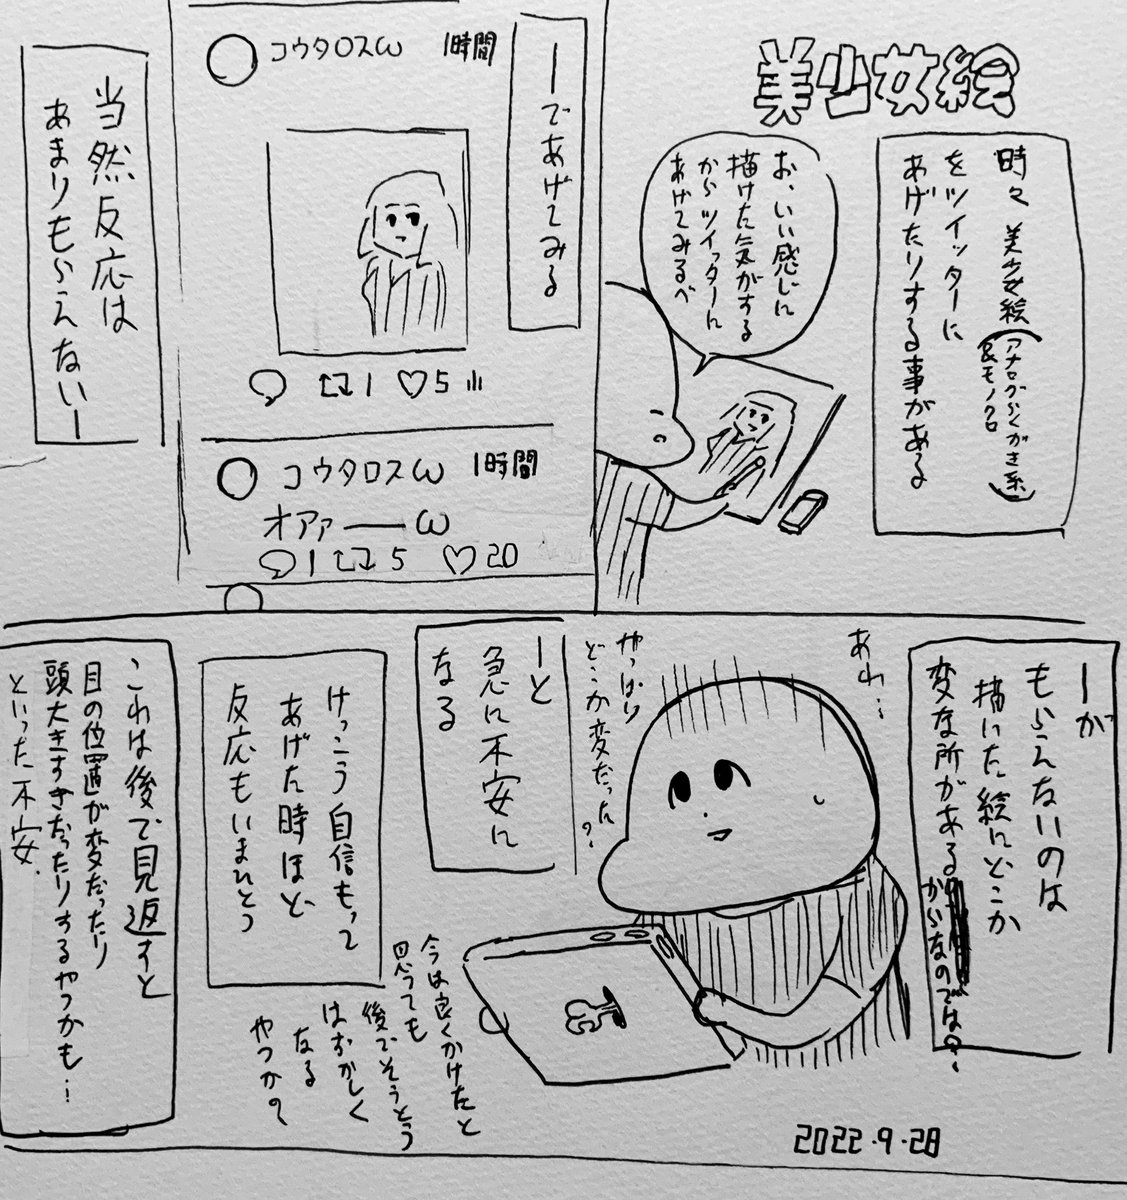 美少女絵
時々 美少女絵
(アナログらくがき系
&モノクロ)
をツイッターに
あげたりする事がある
お、いい感じに
描けた気がする
からツイッターに
あげてみるべ
ーであげてみる
コウタロスω 1時間
1 5
コウタロスω 1時間
オアァーω
1 5 20
当然反応は
あまりもらえないー
ーが
もらえないのは
描いた絵にどこか
変な所がある
からなのでは?
あれ…
やっぱり
どこか変だった?
ーと
急に不安に
なる
けっこう自信もって
あげた時ほど
反応もいまひとつ
今は良くかけたと
思ってても
後でそうとう
はずかしく
なる
やつかの
これは後で見返すと
目の位置が変だったり
頭大きすぎだったりするやつかも…
といった不安
2022.9.28